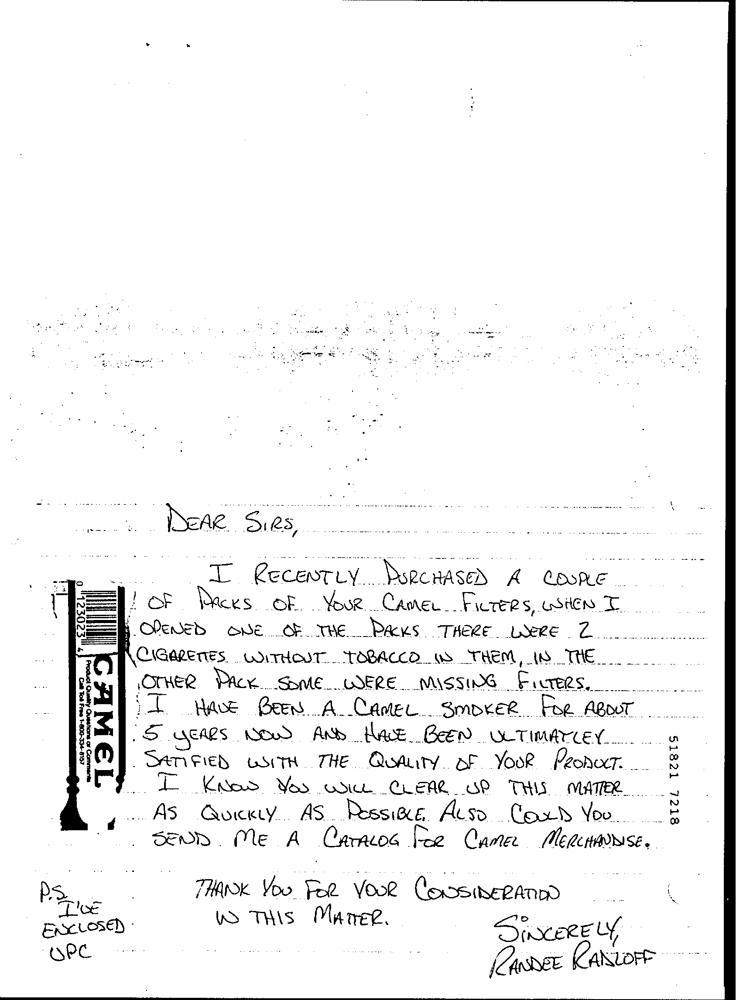 DEAR SIRS,
I RECENTLY PURCHASED A COUPLE
OF PACKS OF YOUR CAMEL FILTERS, WHEN I
OPENED ONE OF THE PACKS THERE WERE 2
CIGARETTES WITHOUT TOBACCO IN THEM, IN THE
OTHER PACK SOME WERE MISSING FILTERS.
I HAVE BEEN A CAMEL SMOKER FOR ABOUT
5 YEARS NOW AND HAVE BEEN ULTIMATLEY
SATIFIED WITH THE QUALITY OF YOUR PRODUCT.
I KNOW YOU WILL CLEAR UP THIS MATTER
AS QUICKLY AS POSSIBLE. ALSO COULD YOU
SEND ME A CATALOG FOR CAMEL MERCHANDISE.
THANK YOU FOR YOUR CONSIDERATION
IN THIS MATTER.
SINCERELY,
RANDEE RADZLOFF
P.S.
I'VE
ENCLOSED
UPC
0 123023 4
CAMEL
Product Quality Questions or Comments
Call Toll Free 1-800-334-8157
51821 7218